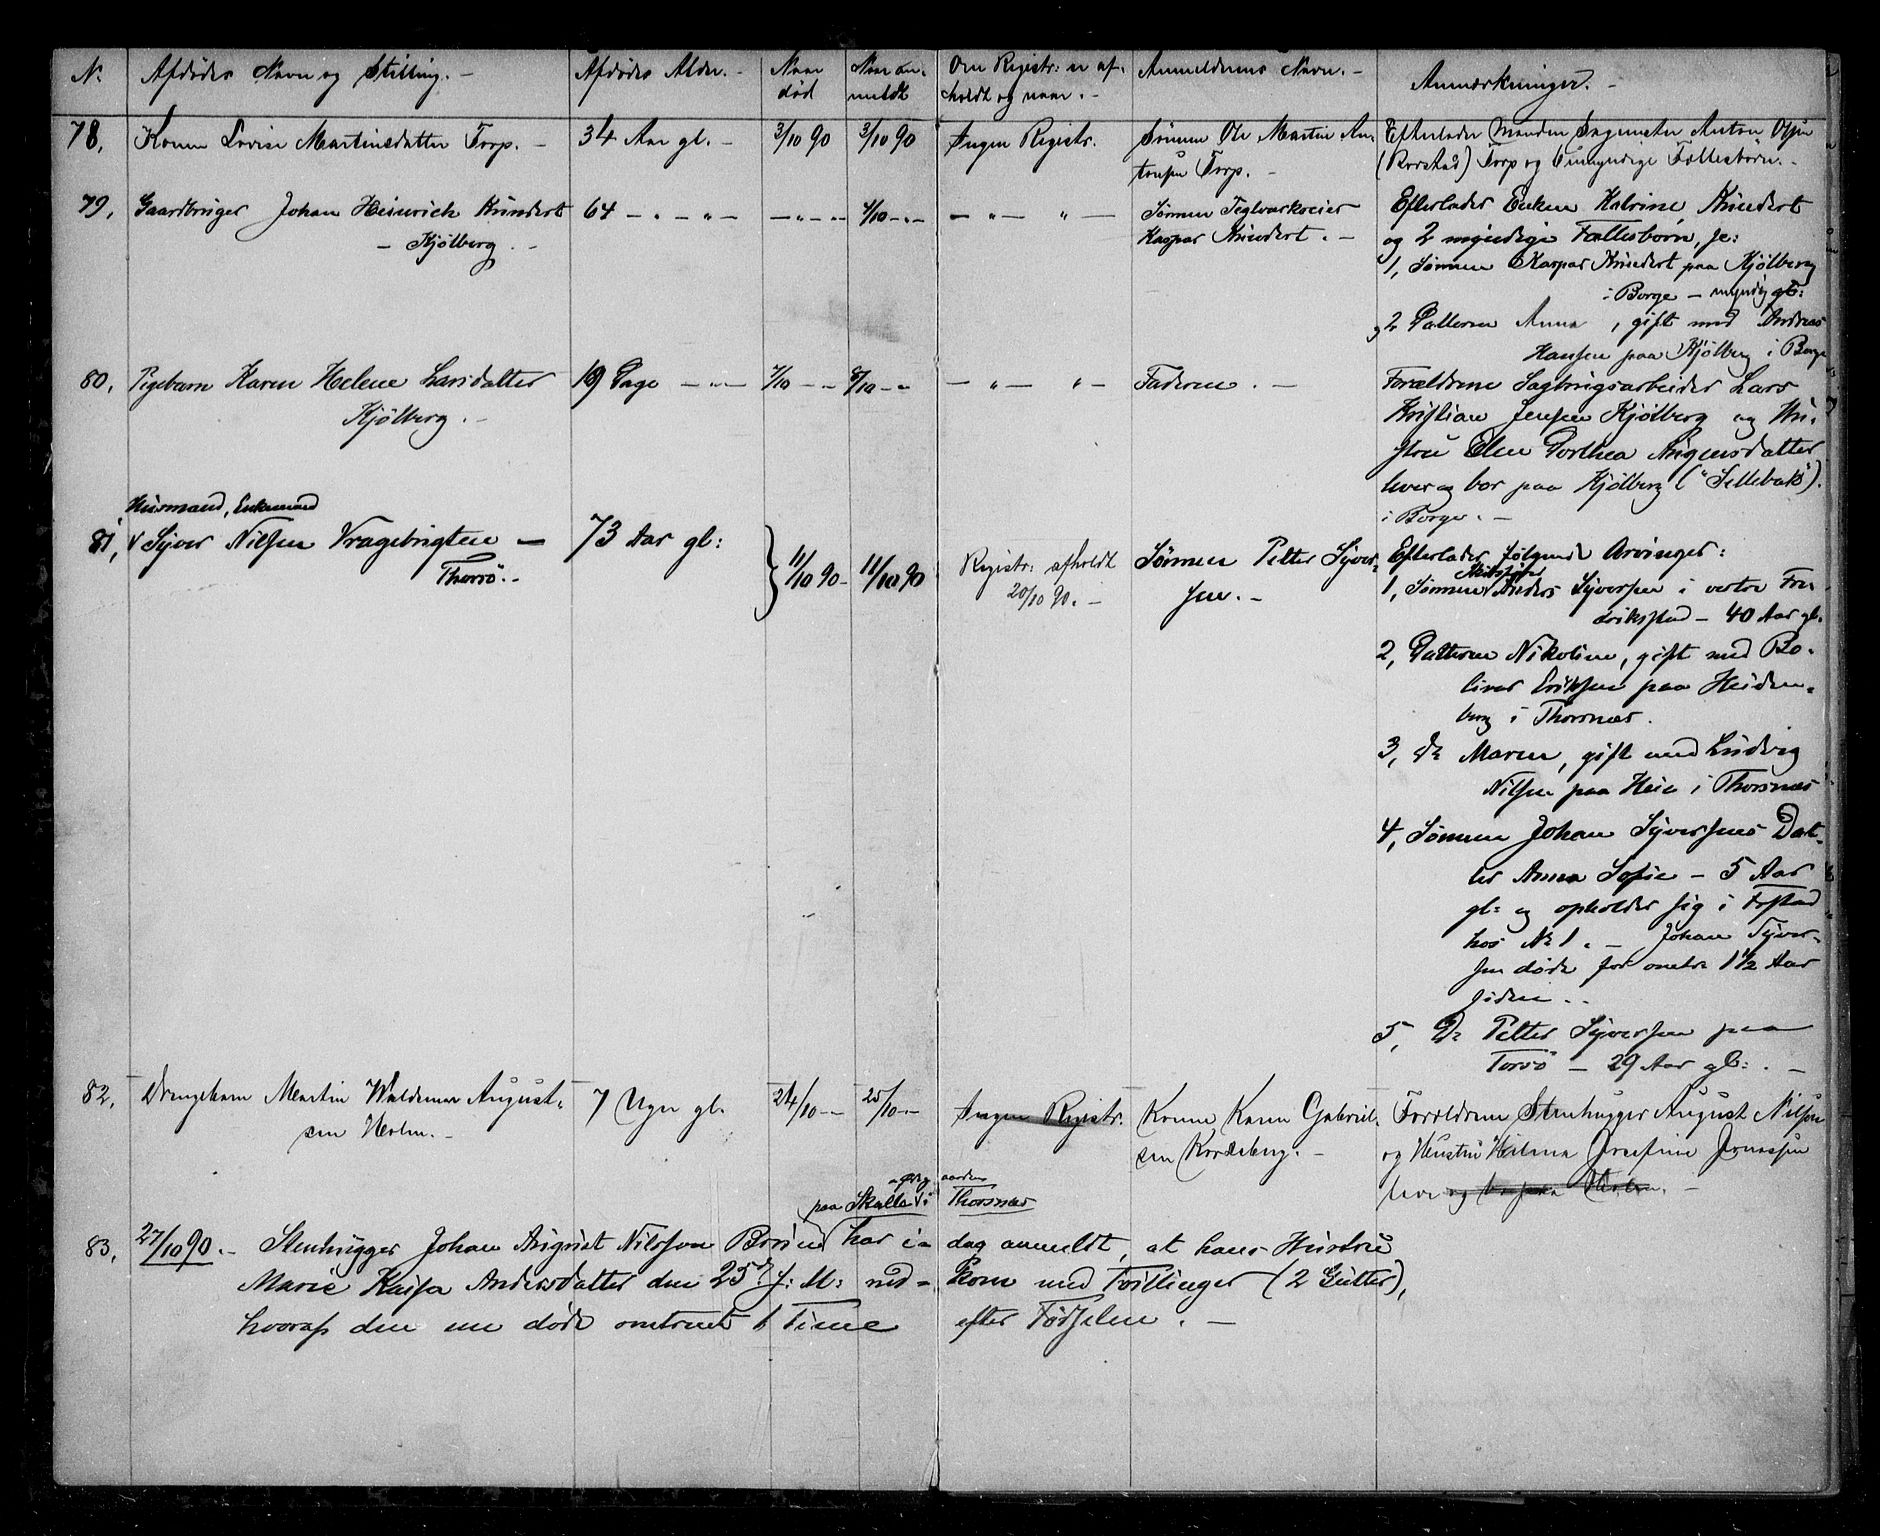 N: Afdødes Navn og Stilling. - Afdødes Alder. - Naar død Naar anmeldt Om Registr: er afholdt og naar. - Anmelderens Navn. - Anmærkninger. -
78, Konen Lovise Martinsdatter Torp. - 34 Aar gl. - 3/10 90 3/10 90 Ingen Registr. Sønnen Ole Martin An-
tonsen Torp. -
Efterlader Manden Sagmester Anton Olsen
(Rorstad) Torp og Umyndige Fællesbørn. -
79, Gaardbruger Johan Heinrich Kundert 64 - " - " - - " - - 4/10 - " - - " - " -
- Kjølberg. -
Sønnen Teglværkseier
Kaspar Kundert. -
Efterlader Enken Katrine Kundert
og 2 myndige Fællesbørn, je:
1, Sønnen Kaspar Kundert paa Kjølberg
i Borge - myndig gl:
og 2 Datteren Anna, gift med Andreas
Hansen paa Kjølberg i Borge
80, Pigebarn Karen Helene Larsdatter 19 Dage - " - 7/10 - " - 8/10 - " - " - " - Faderen. -
Kjølberg. -
Forældrene Sagbrugsarbeider Lars
Kristian Jensen Kjølberg og Hu-
stru Elen Dorthea Augensdatter
lever og bor paa Kjølberg ("Sellebak").
i Borge. -
Husmand, Enkemand
81, Syver Nilsen Vragebrigten - 73 Aar gl: 11/10 90 - 11/10 90
Thorsø. -
Registr: afholdt
20/10 90. -
Sønnen Petter Syver-
sen. -
Efterlader følgende Arvinger:
1, Sønnen Anders Syversen i vestre Fre-
drikstad - 40 Aar gl.
2, Datteren Nikoline, gift med Bo-
livar Eriksen paa Heiden-
berg i Thorsnæs.
3, Do Maren, gift med Ludvig
Nilsen paa Heia i Thorsnæs
4, Sønnen Johan Syversens Dat-
ter Anna Sofie - 5 Aar
gl: og opholder sig i Frstad
hos No 1. - Johan Syver-
sen døde for omtr 1 1/2 Aar
siden. -
5, Do Petter Syversen paa
Torsø - 29 Aar gl: . -
82, Drengebarn Martin Waldemar August- 7 Uger gl. 24/10 - - 25/10 - - Ingen Registr.
sen Holm. -
Konne Karen Gabriel-
sen Kordsberg. -
Forældrene Stenhugger August Nilsen
og Hustru Helena Josefine Jonassen
leve og bo paa Holm. -
83, 27/10 90. - Stenhugger Johan August Nilsson Borsin har i- dag anmeldt, at hans Hustru
paa Skalle i Thorsnæs
Marie Kajsa Andersdatter den 25d f: M: ned- kom med Tvillinger (2 Gutter),
hvoraf den ene døde omtrent 1 Time efter Fødselen. -